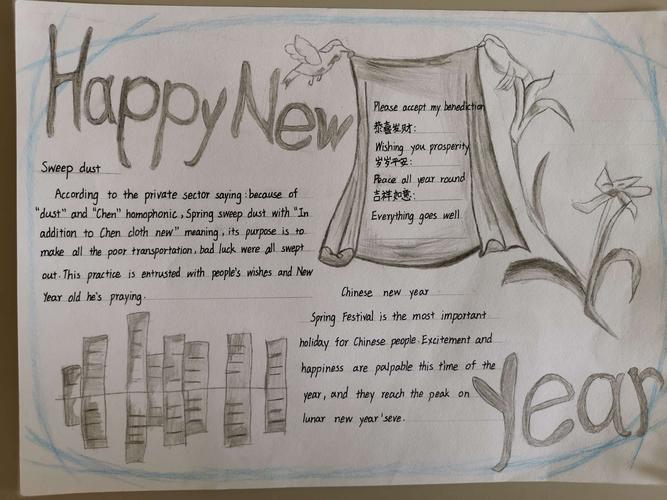 Happy New
Please accept my benediction
恭喜发财:
Wishing you prosperity
岁岁平安:
Peace all year round
吉祥如意:
Everything goes well
Sweep dust
According to the private sector saying: because of
"dust" and "Chen" homophonic, Spring sweep dust with "In
addition to Chen cloth new" meaning, its purpose is to
make all the poor transportation, bad luck were all swept
out. This practice is entrusted with people's wishes and New
Year old he's praying.
Chinese new year
Spring Festival is the most important
holiday for Chinese people. Excitement and
happiness are palpable this time of the
year, and they reach the peak on
lunar new year'seve.
Year